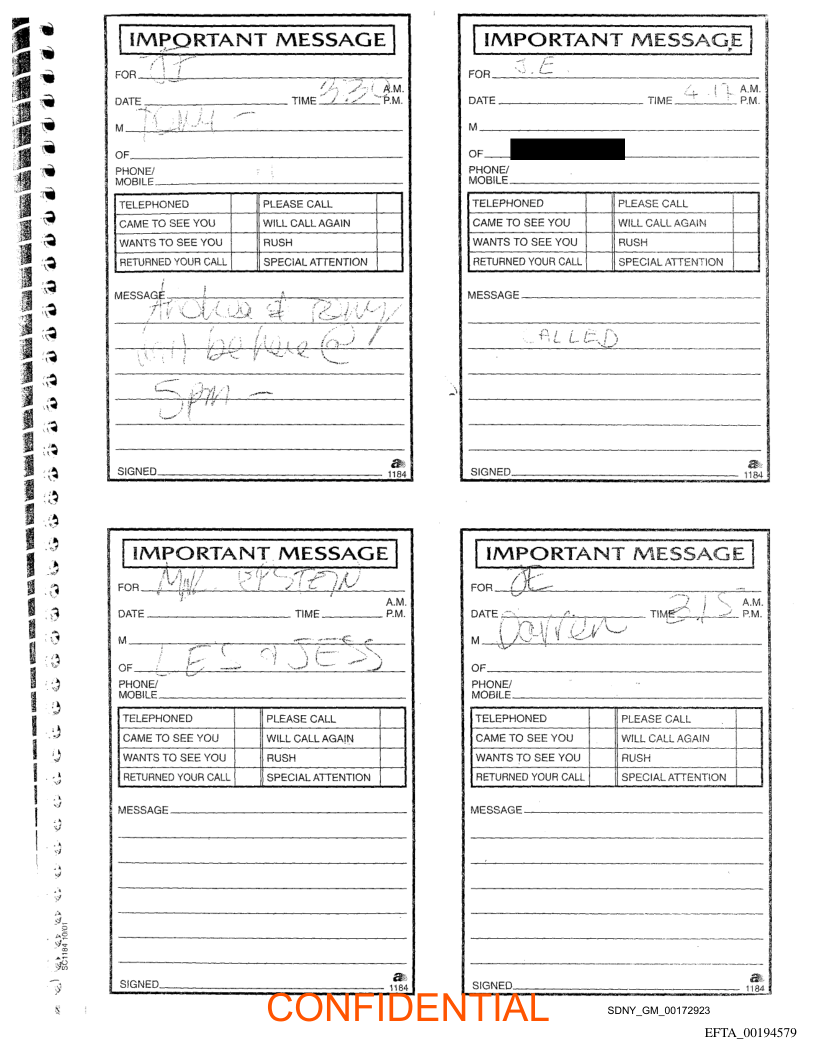 IMPORTANT MESSAGE
FOR
DATE TIME 3:30 A.M.
P.M.
M
OF
PHONE/
MOBILE
TELEPHONED PLEASE CALL
CAME TO SEE YOU WILL CALL AGAIN
WANTS TO SEE YOU RUSH
RETURNED YOUR CALL SPECIAL ATTENTION
MESSAGE Andrea &
will be here @
5pm -
SIGNED
1184
IMPORTANT MESSAGE
FOR J.E.
DATE TIME 4.17 A.M.
P.M.
M
OF
PHONE/
MOBILE
TELEPHONED PLEASE CALL
CAME TO SEE YOU WILL CALL AGAIN
WANTS TO SEE YOU RUSH
RETURNED YOUR CALL SPECIAL ATTENTION
MESSAGE
CALLED
SIGNED
1184
IMPORTANT MESSAGE
FOR MR. EPSTEIN
A.M.
DATE TIME P.M.
M
OF LES & JESS
PHONE/
MOBILE
TELEPHONED PLEASE CALL
CAME TO SEE YOU WILL CALL AGAIN
WANTS TO SEE YOU RUSH
RETURNED YOUR CALL SPECIAL ATTENTION
MESSAGE
SIGNED
1184
IMPORTANT MESSAGE
FOR JE
A.M.
DATE TIME 2:15 P.M.
M Darren
OF
PHONE/
MOBILE
TELEPHONED PLEASE CALL
CAME TO SEE YOU WILL CALL AGAIN
WANTS TO SEE YOU RUSH
RETURNED YOUR CALL SPECIAL ATTENTION
MESSAGE
SIGNED
1184
SC1184 10/01
CONFIDENTIAL
SDNY_GM_00172923
EFTA_00194579